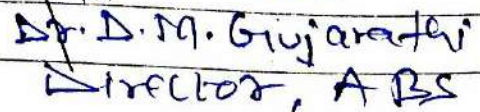 Dr. D. M. Gujarathi
Director, ABS